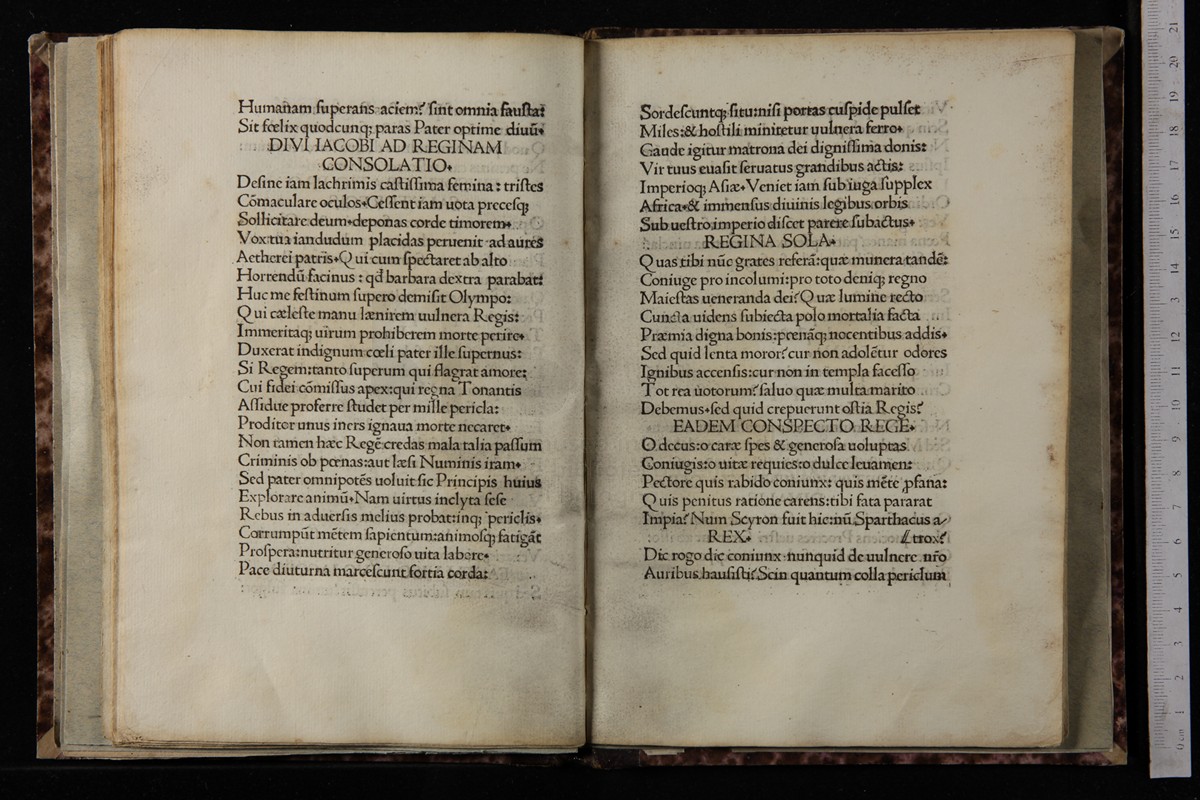 Humanam superans aciem? sint omnia fausta:
Sit fœlix quodcunq; paras Pater optime diuū.
DIVI IACOBI AD REGINAM
CONSOLATIO.
Desine iam lachrimis castissima femina: tristes
Cōmaculare oculos. Cessent iam uota precesq;
Sollicitare deum. deponas corde timorem.
Vox tua iandudum placidas peruenit ad aures
Aetherei patris. Qui cum spectaret ab alto
Horrendū facinus: qđ barbara dextra parabat:
Huc me festinum supero demisit Olympo:
Qui cæleste manu lænirem uulnera Regis:
Immeritaq; uirum prohiberem morte perire.
Duxerat indignum cœli pater ille supernus:
Si Regem: tanto superum qui flagrat amore:
Cui fidei cōmissus apex: qui regna Tonantis
Assidue proferre studet per mille pericla:
Proditer unus iners ignaua morte necaret.
Non tamen hæc Regē credas mala talia passum
Criminis ob pœnas: aut læsi Numinis iram.
Sed pater omnipotēs uoluit sic Principis huius
Explorare animū. Nam uirtus inclyta sese
Rebus in aduersis melius probat: inq; periclis.
Corrumpūt mētem sapientum: animosq; fatigāt
Prospera: nutritur generoso uita labore.
Pace diuturna marcescunt fortia corda:
Sordescuntq; situ: nisi portas cuspide pulset
Miles: & hostili minitetur uulnera ferro.
Gaude igitur matrona dei dignissima donis:
Vir tuus euasit seruatus grandibus actis:
Imperioq; Asiæ. Veniet iam sub iuga supplex
Africa. & immensus diuinis legibus orbis
Sub uestro imperio discet parere subactus.
REGINA SOLA.
Quas tibi nūc grates referā: quæ munera tandē:
Coniuge pro incolumi: pro toto deniq; regno
Maiestas ueneranda dei? Quæ lumine recto
Cuncta uidens subiecta polo mortalia facta
Præmia digna bonis: pœnāq; nocentibus addis.
Sed quid lenta moror? cur non adolētur odores
Ignibus accensis: cur non in templa facesso
Tot rea uotorum? saluo quæ multa marito
Debemus. sed quid crepuerunt ostia Regis?
EADEM CONSPECTO REGE.
O decus: o caræ spes & generosa uoluptas
Coniugis: o uitæ requies: o dulce leuamen:
Pectore quis rabido coniunx: quis mēte ꝓfana:
Quis penitus ratione carens: tibi fata pararat
Impia? Num Scyron fuit hic: nū Sparthacus a
REX. trox?
Dic rogo dic coniunx nunquid de uulnere nr̄o
Auribus hausisti? Scin quantum colla periclum